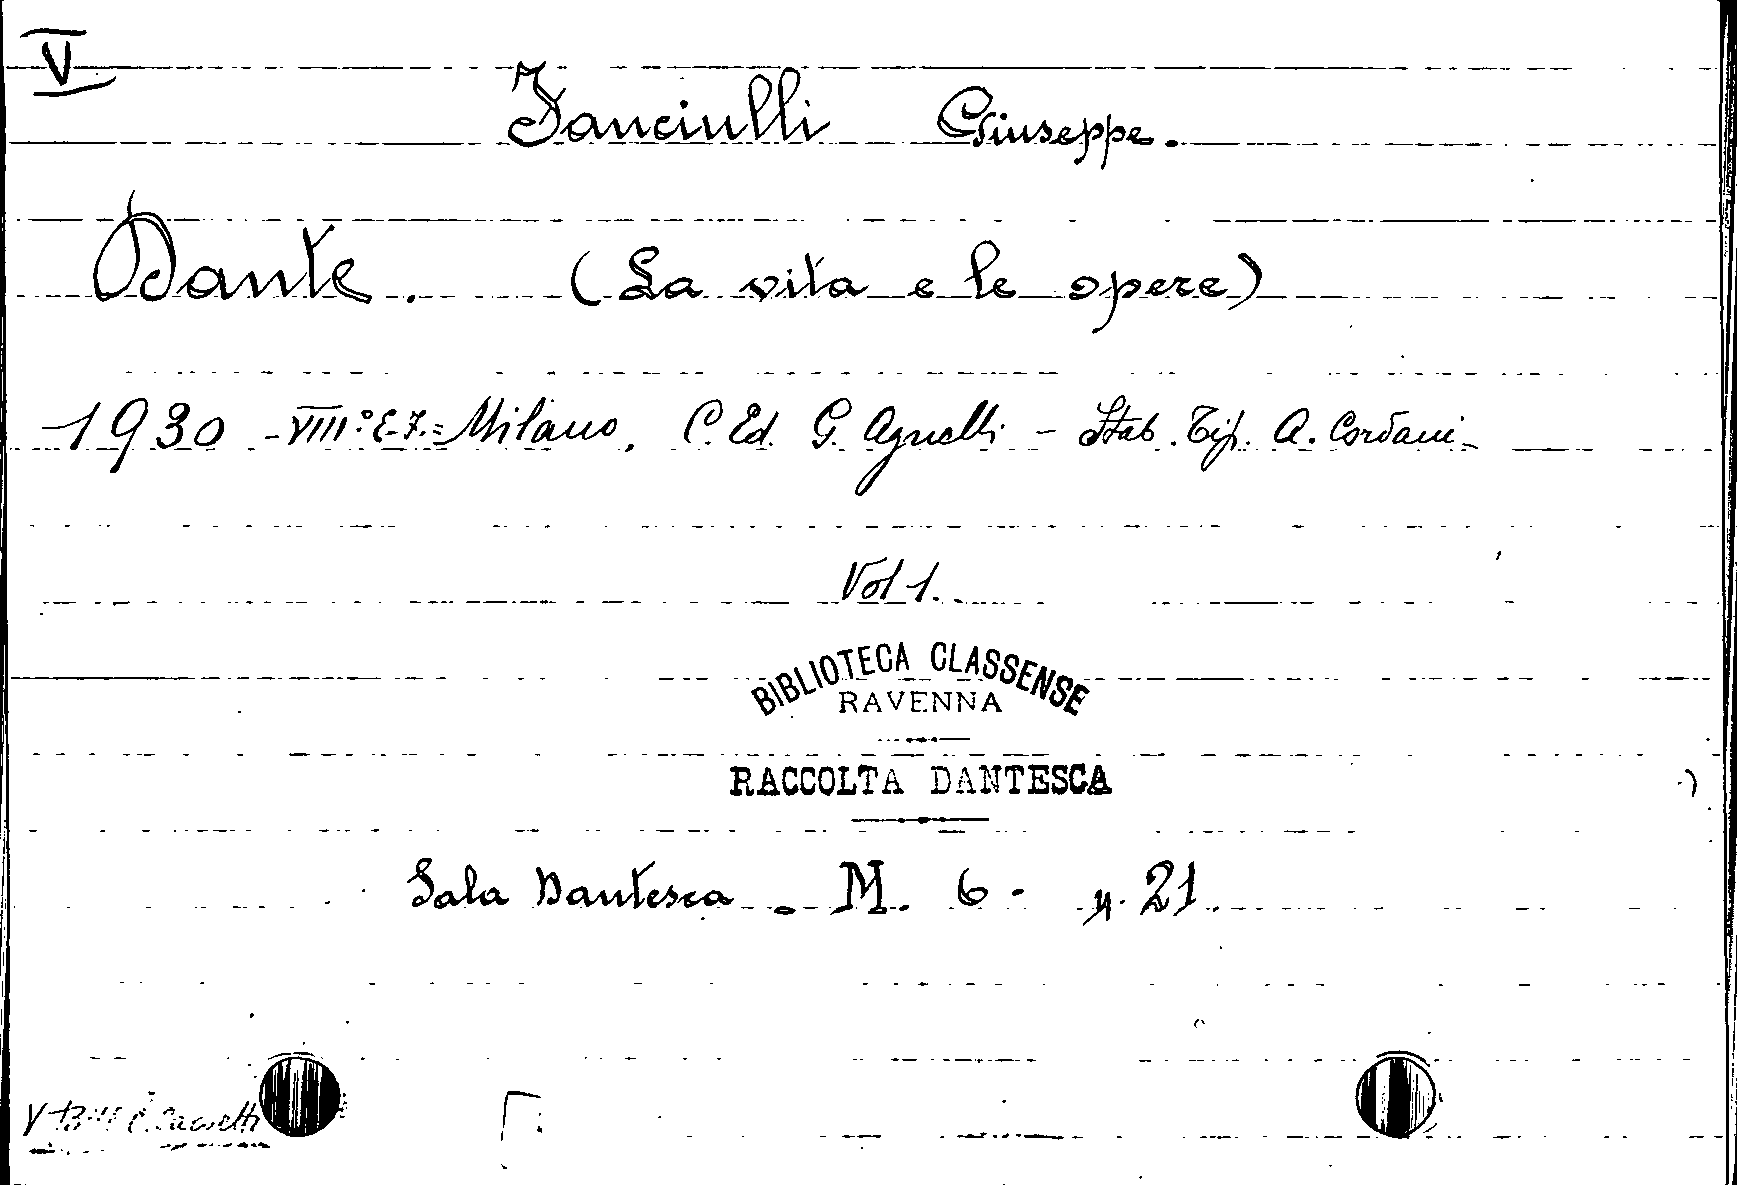 V
Fanciulli Giuseppe.
Dante. (La vita e le opere)
1930 - VIII° E.F. = Milano, C. Ed. G. Agnelli - Stab. Tip. A. Cordani -
Vol 1.
BIBLIOTECA CLASSENSE
RAVENNA
RACCOLTA DANTESCA
Sala Dantesca - M. 6 - n. 21.